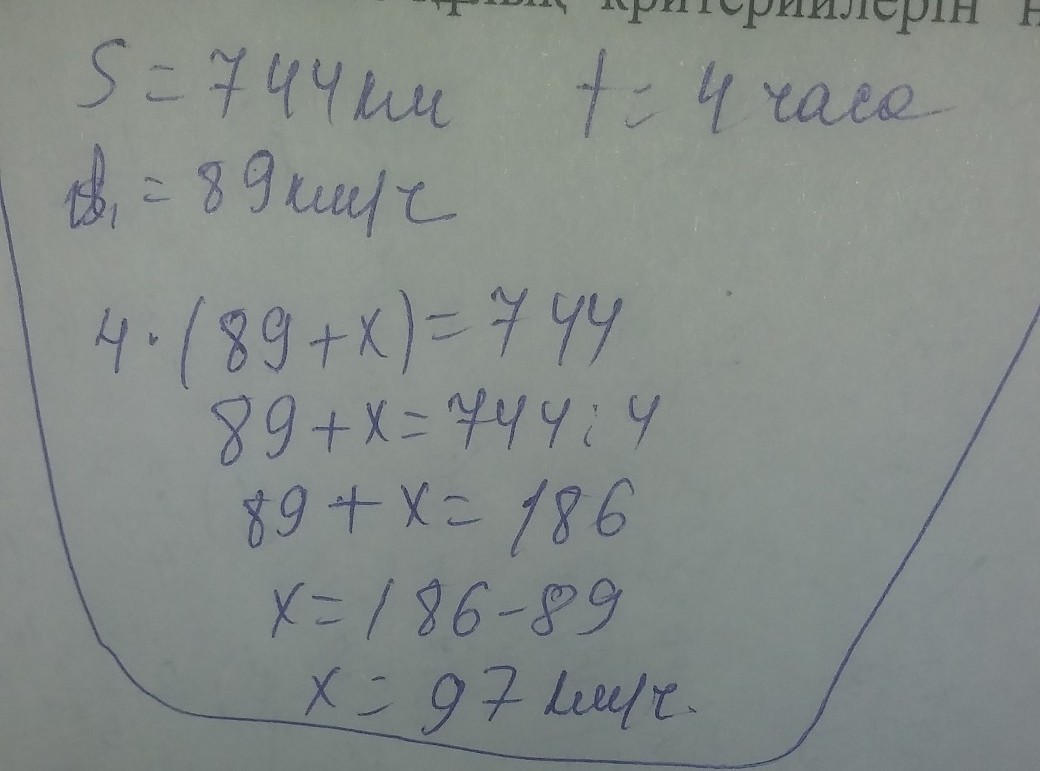 критерийлерін
S = 744км t = 4 часа
v₁ = 89км/ч
4 · (89 + x) = 744
89 + x = 744 : 4
89 + x = 186
x = 186 - 89
x = 97 км/ч.